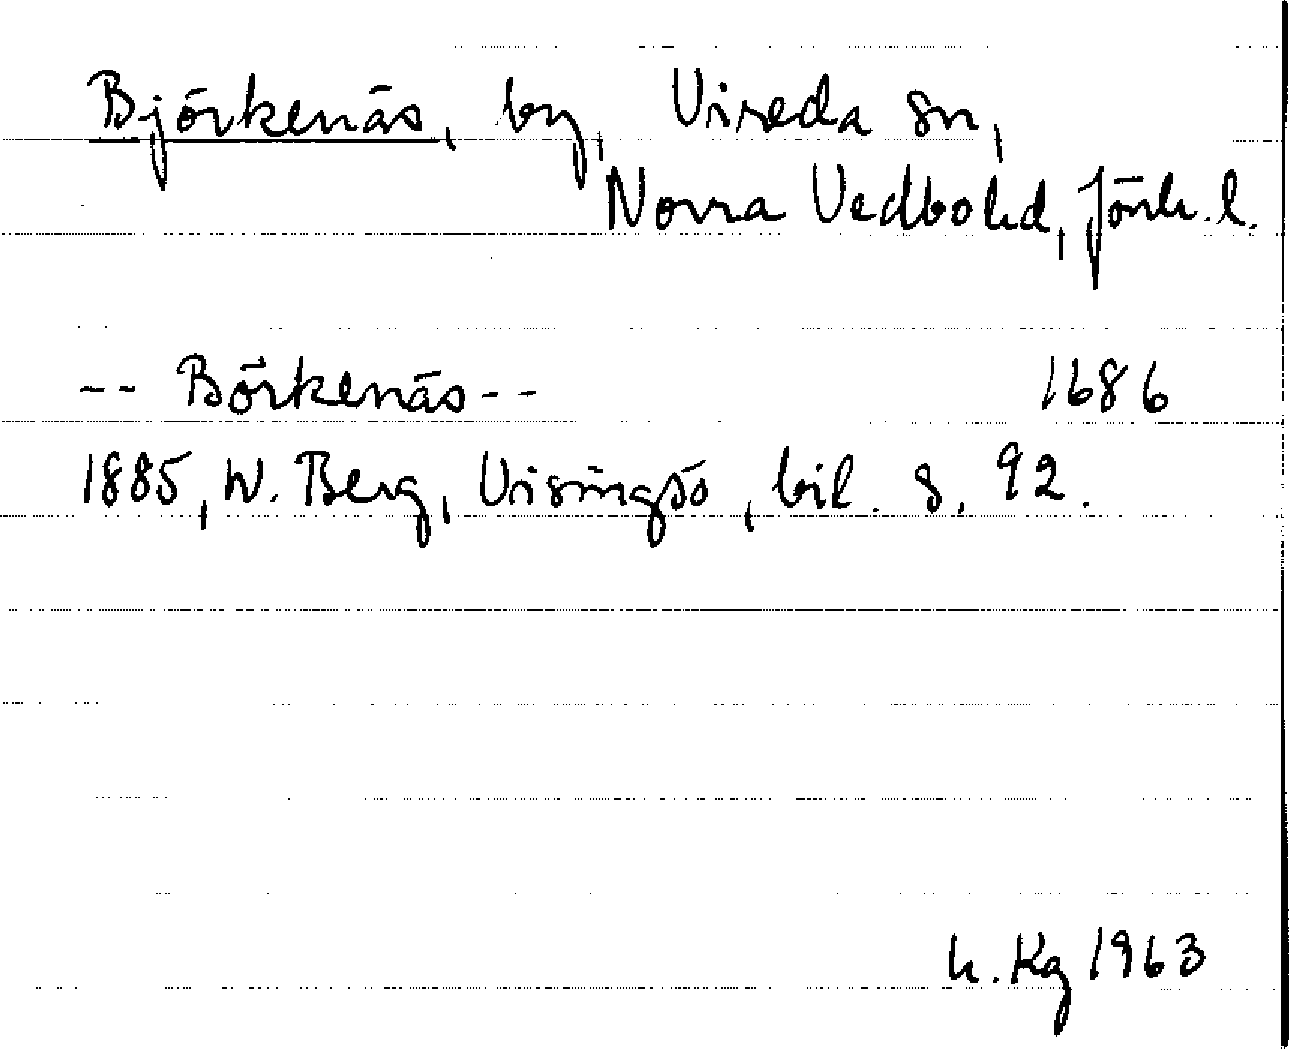 Björkenäs, by, Vireda sn,
Norra Vedbohd, Jönk. l.
-- Börkenäs -- 1686
1885, W. Berg, Visingsö, bil. s. 92.
h. Kg 1963